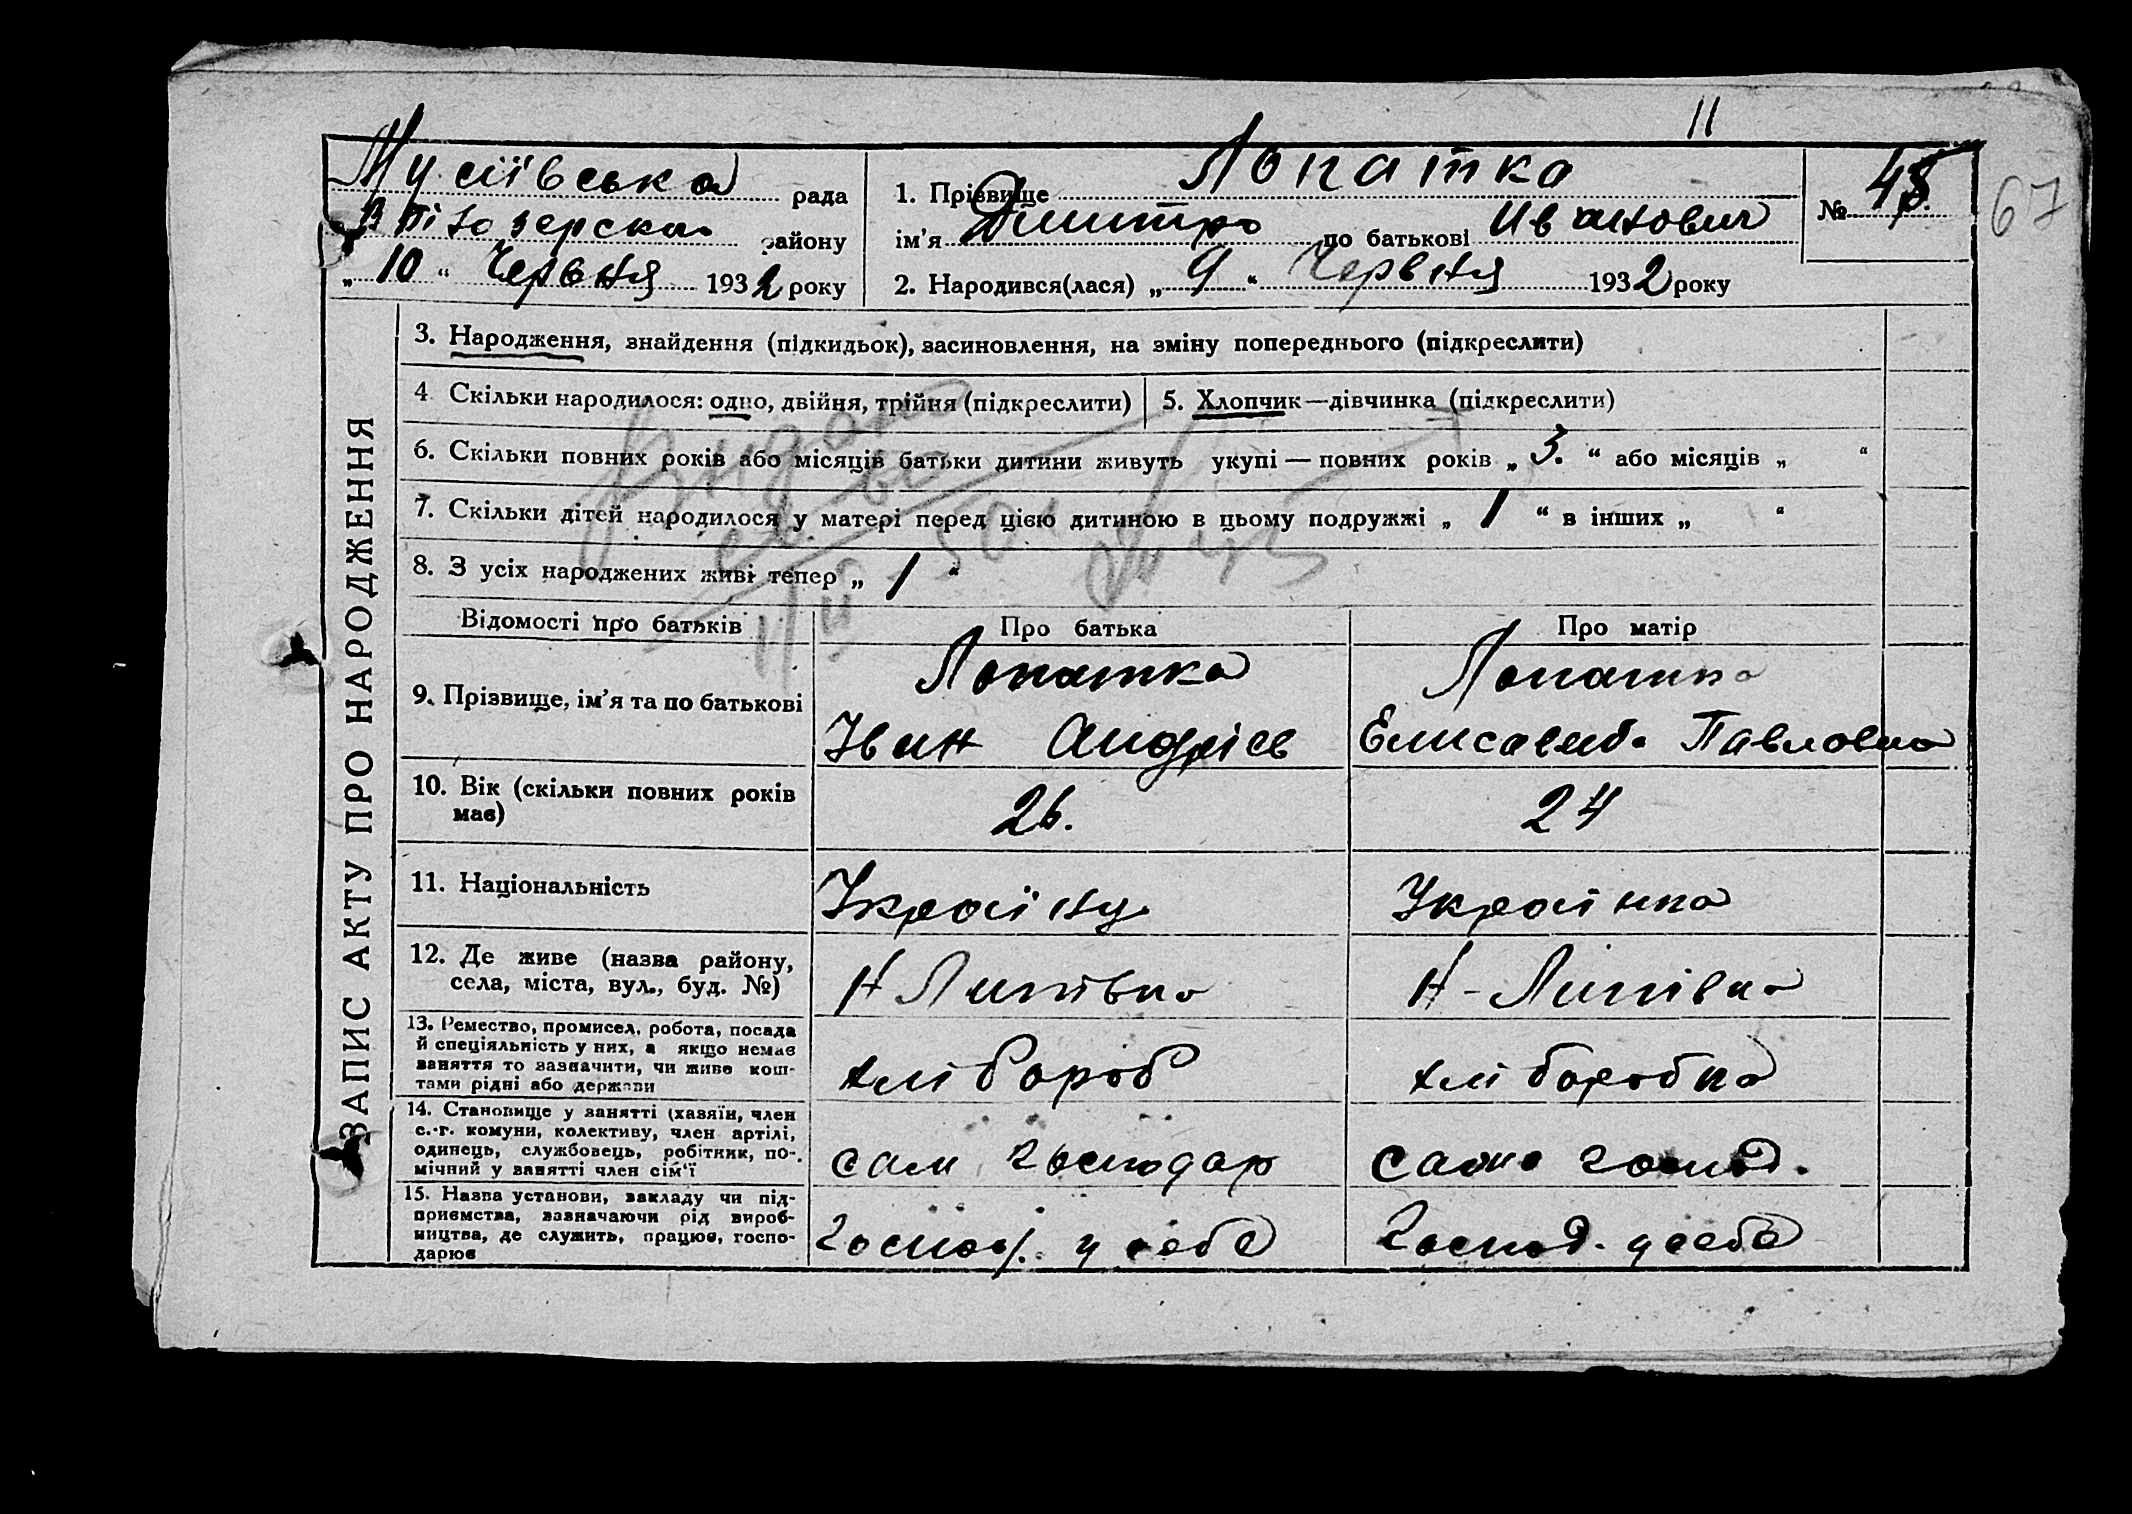 11
Мусіївська рада
району
„ 10 “ Червня 1932 року
1. Прізвище Лопатка
ім’я Дмитро по батькові Иванович
2. Народився(лася) „ 9 “ Червня 1932 року
№ 48
67
ЗАПИС АКТУ ПРО НАРОДЖЕННЯ
3. Народження, знайдення (підкидьок), засиновлення, на зміну попереднього (підкреслити)
4 Скільки народилося: одно, двійня, трійня (підкреслити)
5. Хлопчик—дівчинка (підкреслити)
6. Скільки повних років або місяців батьки дитини живуть укупі — повних років „ 3. “ або місяців „ “
7. Скільки дітей народилося у матері перед цією дитиною в цьому подружжі „ 1 “ в інших „ “
8. З усіх народжених живі тепер „ 1 “
Видано
Відомості про батьків
Про батька
Про матір
9. Прізвище, ім’я та по батькові
Лопатка
Іван Андрієв
Лопатка
Елисавет. Павловна
10. Вік (скільки повних років
має)
26.
24
11. Національність
Україн
Українка
12. Де живе (назва району,
села, міста, вул., буд. №)
Н Липівка
Н - Липівка
13. Ремество, промисел, робота, посада
й спеціяльність у них, а якщо немає
заняття то зазначити, чи живе кош-
тами рідні або держави
хлібороб
хліборобка
14. Становище у занятті (хазяїн, член
с.-г. комуни, колективу, член артілі,
одинець, службовець, робітник, по-
мічний у занятті член сім’ї
сам господар
сама господ.
15. Назва установи, закладу чи під-
приємства, зазначаючи рід вироб-
ництва, де служить, працює, госпо-
дарює
Господ. у себе
Господ. у себе